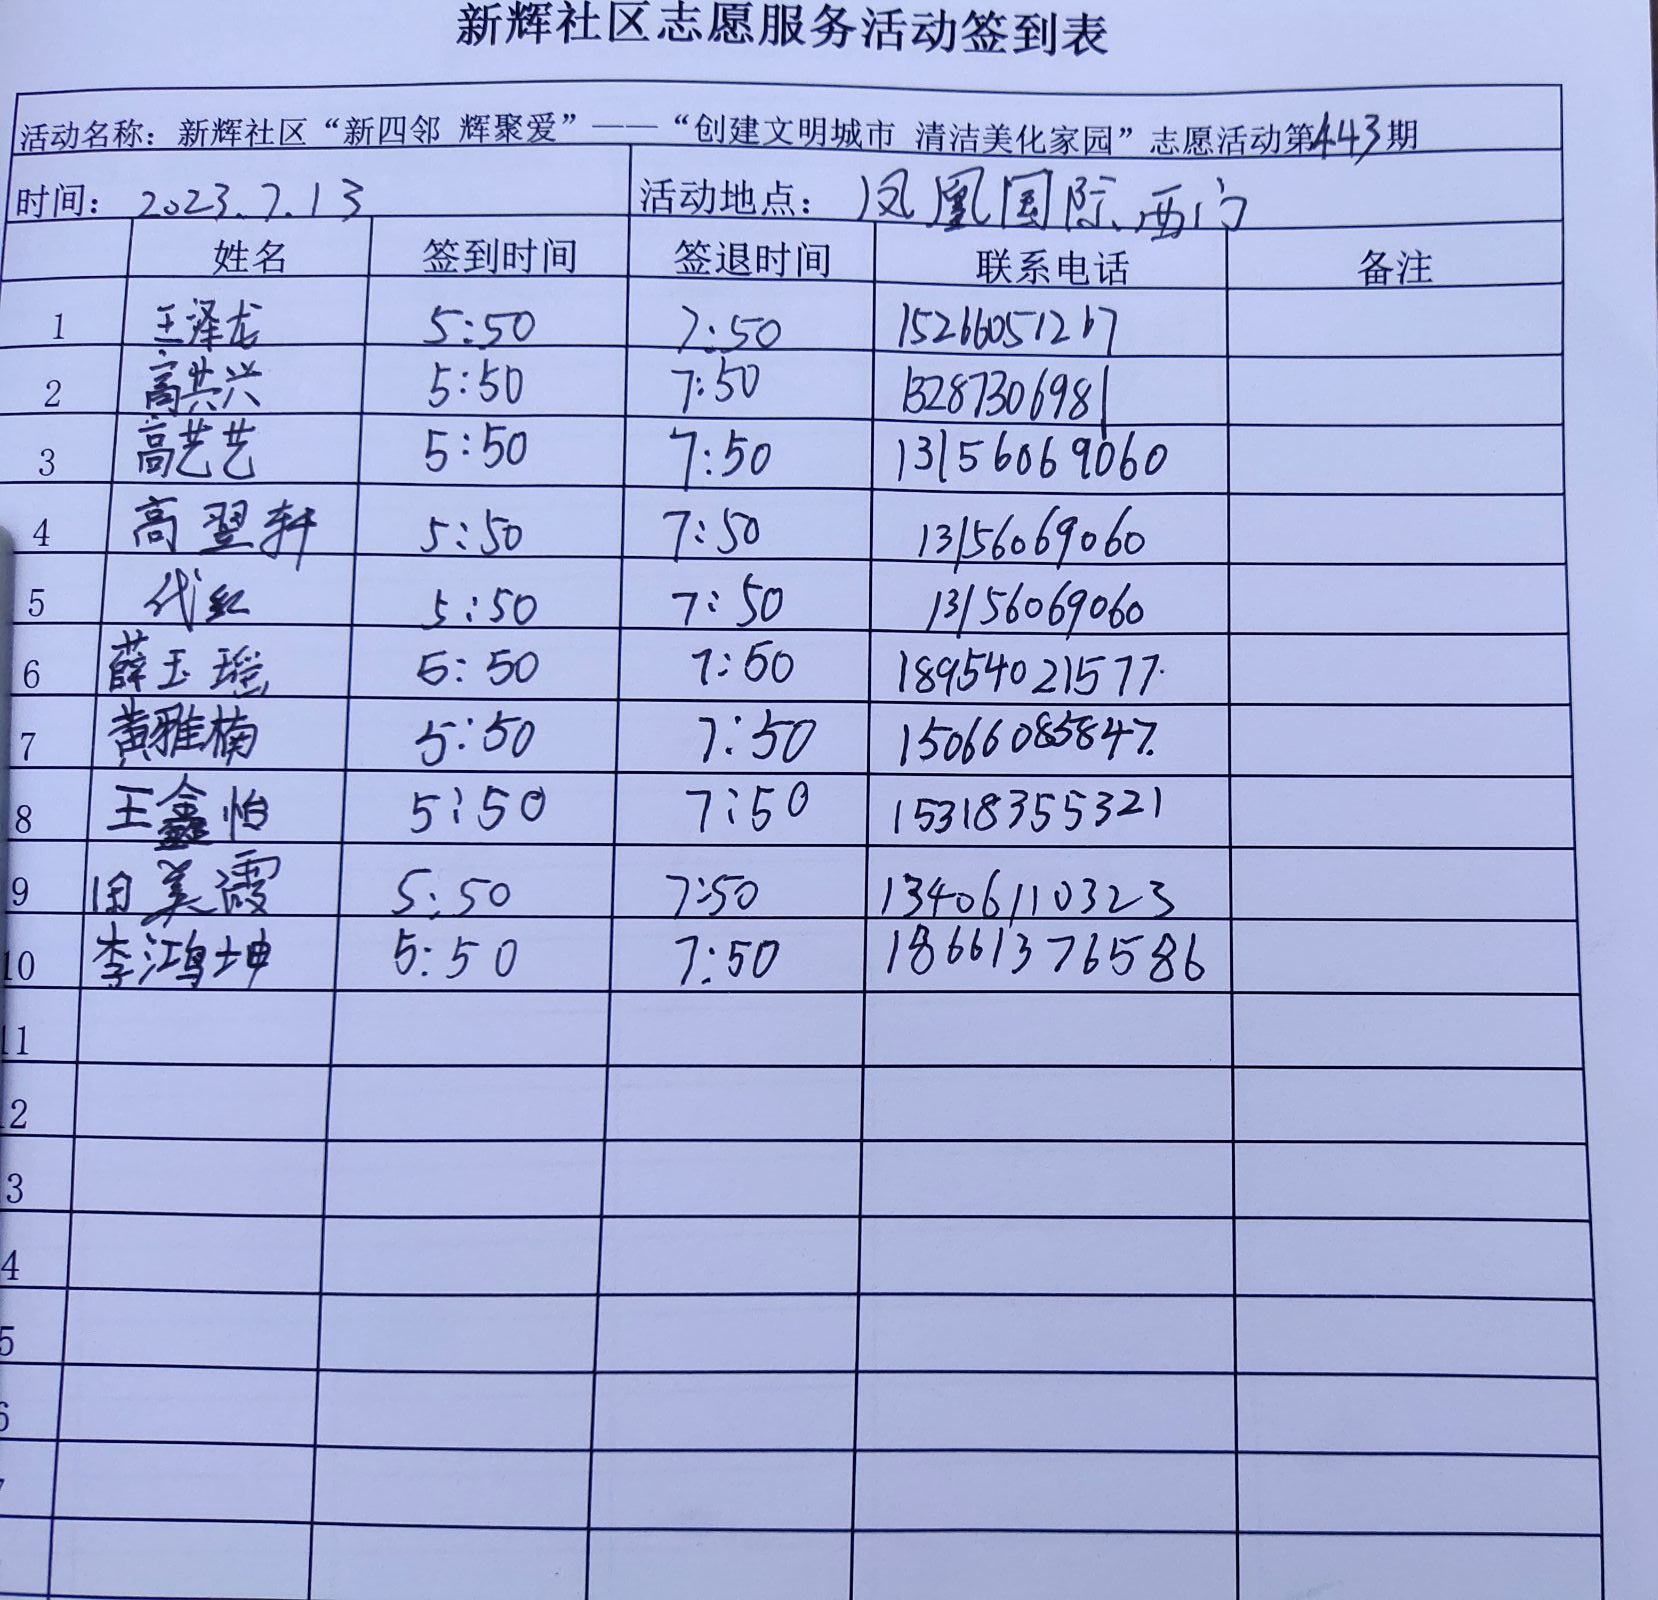 新辉社区志愿服务活动签到表
活动名称：新辉社区“新四邻 辉聚爱”——“创建文明城市 清洁美化家园”志愿活动第443期
时间：2023.7.13 活动地点：凤凰国际西门
姓名 签到时间 签退时间 联系电话 备注
1 王泽龙 5:50 7:50 15266051267
2 高共兴 5:50 7:50 13287306981
3 高艺艺 5:50 7:50 13156069060
4 高翌轩 5:50 7:50 13156069060
5 代红 5:50 7:50 13156069060
6 薛玉瑶 5:50 7:50 18954021577
7 黄雅楠 5:50 7:50 15066085847
8 王鑫怡 5:50 7:50 15318355321
9 田美霞 5:50 7:50 13406110323
10 李鸿坤 5:50 7:50 18661376586
11
12
13
14
15